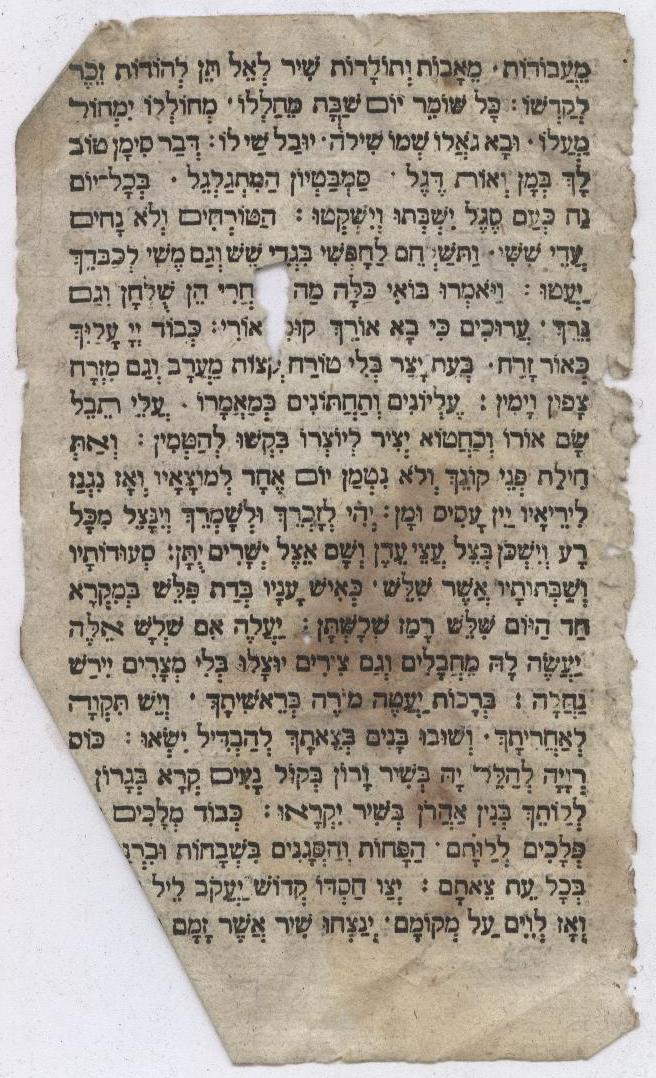 מֵעֲבוֹדוֹת· מֵאָבוֹת וְתוֹלָדוֹת שִׁיר לָאֵל תֵּן לְהוֹדוֹת זֵכֶר
לְקַדְשׁוֹ: כָּל שׁוֹמֵר יוֹם שַׁבָּת מֵחַלְלוֹ· מְחוֹלְלוֹ יִמְחוֹל
מַעֲלוֹ· וּבָא גֹאֲלוֹ שְׁמוֹ שִׁילֹה· יוּבַל שַׁי לוֹ: דְּבַר סִימָן טוֹב
לָךְ בְּמָן וְאוֹת דֶּגֶל· סַמְבַּטְיוֹן הַמִּתְגַּלְגֵּל· בְּכָל־יוֹם
נַח כְּעַם סֶגֶל יִשְׁבְּתוּ וְיִשְׁקְטוּ: הַטּוֹרְחִים וְלֹא נָחִים
עֲדֵי שִׁשִּׁי· לַחָפְשִׁי בִּגְדֵי שֵׁשׁ וְגַם מֶשִׁי לִכְבֹדֵךְ
יַעֲטוּ: וַיֹּאמְרוּ בּוֹאִי כַלָּה מַה חֲרִי הֵן שֻׁלְחָן וְגַם
נֵרֵךְ· עֲרוּכִים כִּי בָא אוֹרֵךְ אוֹרִי: כְּבוֹד יְיָ עָלַיִךְ
כְּאוֹר זָרַח· בְּעֵת יָצַר בְּלִי טוֹרַח קְצוֹת מַעֲרָב וְגַם מִזְרָח
צָפוֹן וְיָמִין: עֶלְיוֹנִים וְתַחְתּוֹנִים בְּמַאֲמָרוֹ· עֲלֵי תֵבֵל
שָׂם אוֹרוֹ וְכַחֲטוֹא יְצִיר לְיוֹצְרוֹ בִּקְשׁוּ לְהַטְמִין: וְאַתְּ
חִילַּת פְּנֵי קוֹנֵךְ וְלֹא נִטְמַן יוֹם אֶחָד לְמוֹצָאָיו וְאָז נִגְנַז
לִירֵיאָיו יַיִן עָסִים וּמָן: יְהִי לְזָכְרֵךְ וּלְשָׁמְרֵךְ וְיִנָּצֵל מִכָּל
רָע וְיִשְׁכֹּן בְּצֵל עֲצֵי עֵדֶן וְשָׁם אֵצֶל יְשָׁרִים יֻתָּן: סְעוּדוֹתָיו
וְשַׁבְּתוֹתָיו אֲשֶׁר שִׁלֵּשׁ· כְּאִישׁ עָנָיו בְּדַת פִּלֵּשׁ בְּמִקְרָא
חַד הַיּוֹם שִׁלֵּשׁ רָמַז שְׁלָשְׁתָּן: יַעֲלֶה אִם שְׁלָשׁ אֵלֶּה
יַעֲשֶׂה לָהּ מֵחֲבָלִים וְגַם צִירִים יוּצָלוּ בְּלִי מְצָרִים יִירַשׁ
נַחֲלָה: בְּרָכוֹת יַעְטֶה מוֹרֶה בְּרֵאשִׁיתָךְ· וְיֵשׁ תִּקְוָה
לְאַחֲרִיתָךְ· וְשׁוּבוּ בָּנִים בְּצֵאתָךְ לְהַבְדִּיל יִשְׂאוּ: כּוֹס
רְוָיָה לְהַלֵּל יָהּ בְּשִׁיר וָרוֹן בְּקוֹל נָעִים קְרָא בְּגָרוֹן
לְלַוֹּתֵךְ בְּנִין אַהֲרֹן בְּשִׁיר יִקְרָאוּ: כְּבוֹד מְלָכִים
פְּלָכִים לְלַוֹּתָם· הַפָּחוֹת וְהַסְּגָנִים בִּשְׁבָחוֹת
בְּכָל עֵת צֵאתָם: יְצַו חַסְדּוֹ קְדוֹשׁ יַעֲקֹב לֵיל
וְאָז לְוִיִּם עַל מְקוֹמָם· יְנַצְּחוּ שִׁיר אֲשֶׁר זָמַם